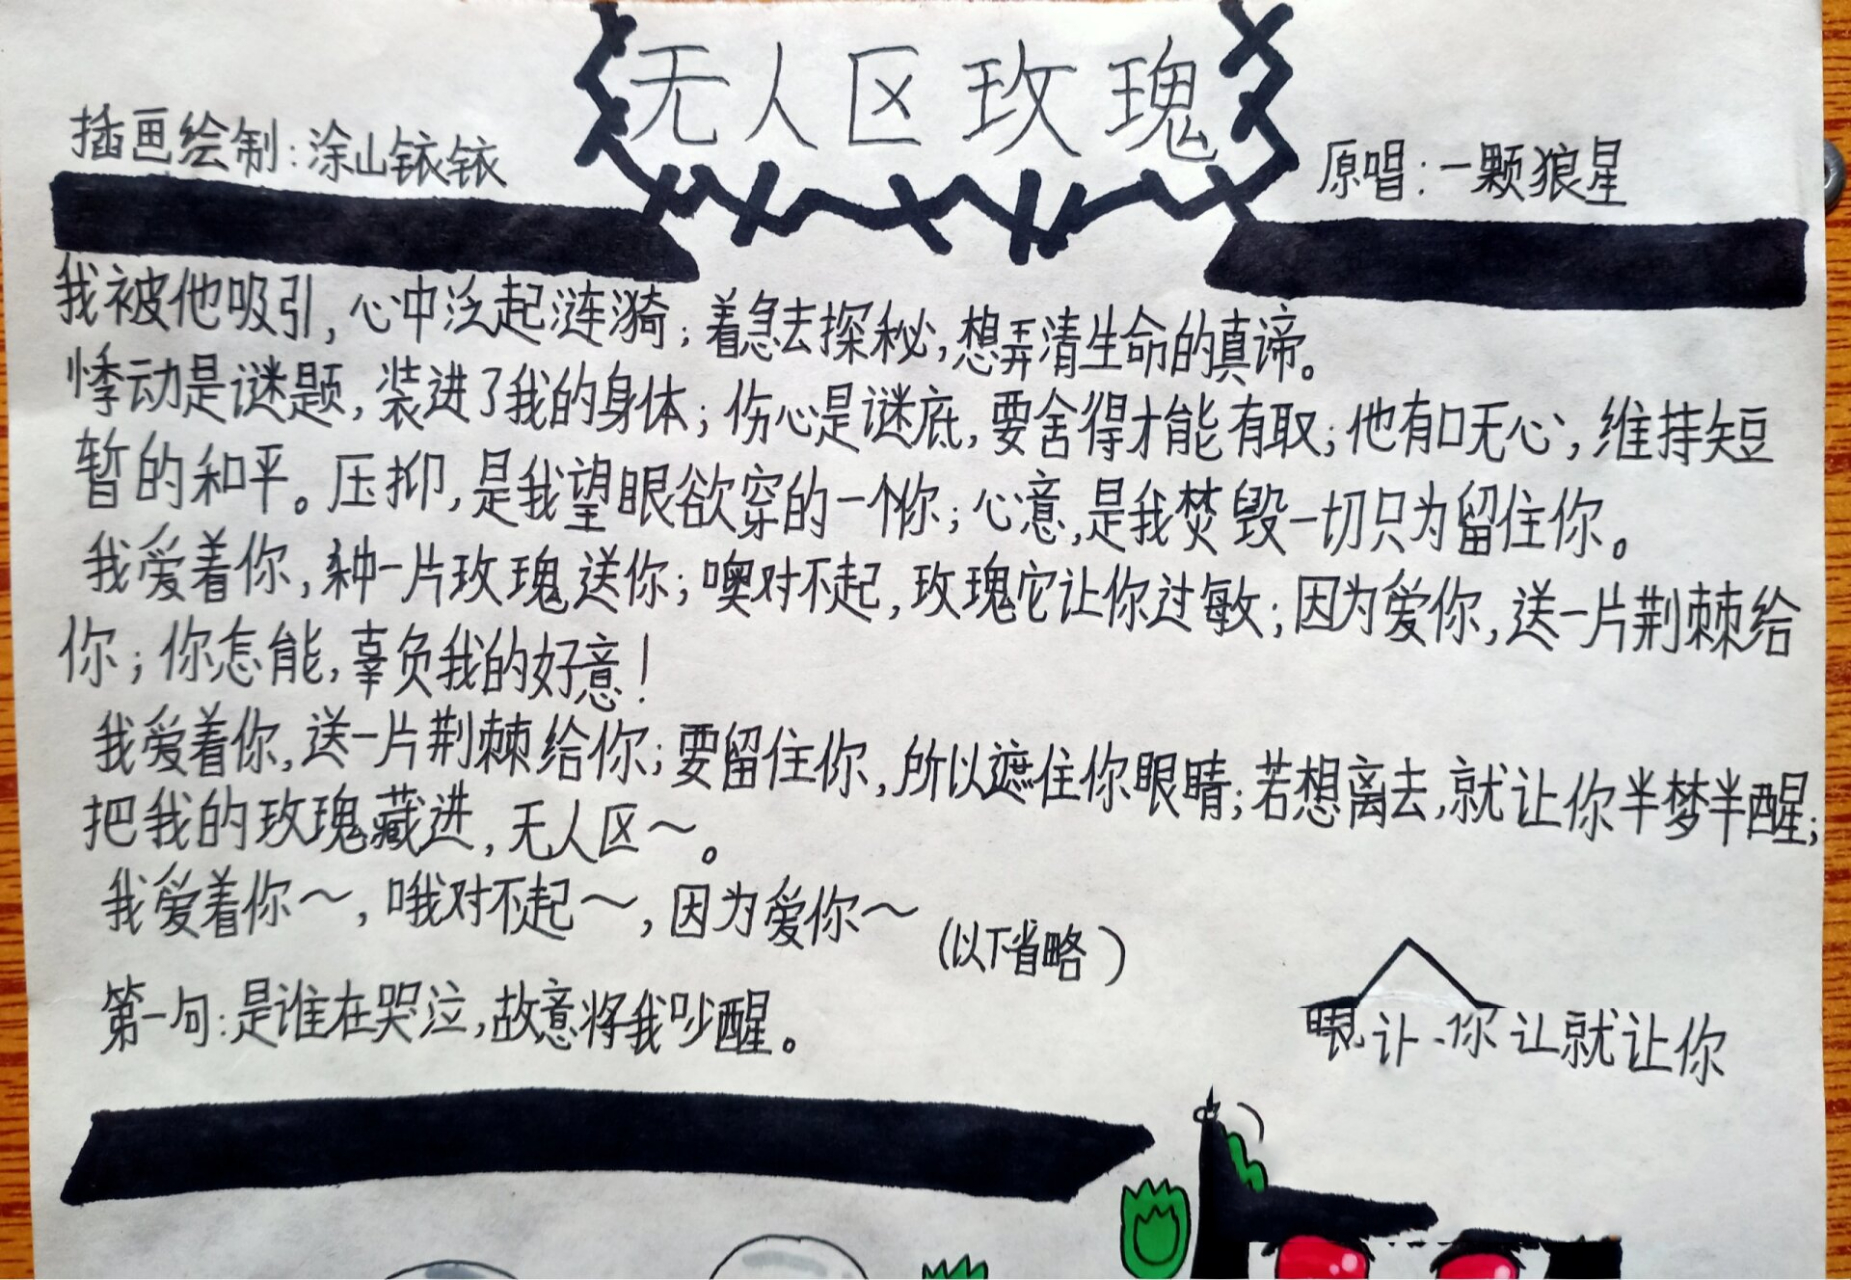 无人区玫瑰
插画绘制:涂山铱铱
原唱:一颗狼星
我被他吸引,心中泛起涟漪;着急去探秘,想弄清生命的真谛。
悸动是谜题,装进了我的身体;伤心是谜底,要舍得才能有取;他有口无心,维持短
暂的和平。压抑,是我望眼欲穿的一个你;心意,是我焚毁一切只为留住你。
我爱着你,种一片玫瑰送你;噢对不起,玫瑰它让你过敏;因为爱你,送一片荆棘给
你;你怎能,辜负我的好意!
我爱着你,送一片荆棘给你;要留住你,所以遮住你眼睛;若想离去,就让你半梦半醒;
把我的玫瑰藏进,无人区～。
我爱着你～,哦对不起～,因为爱你～
(以下省略)
第一句:是谁在哭泣,故意将我吵醒。
眼让你让就让你